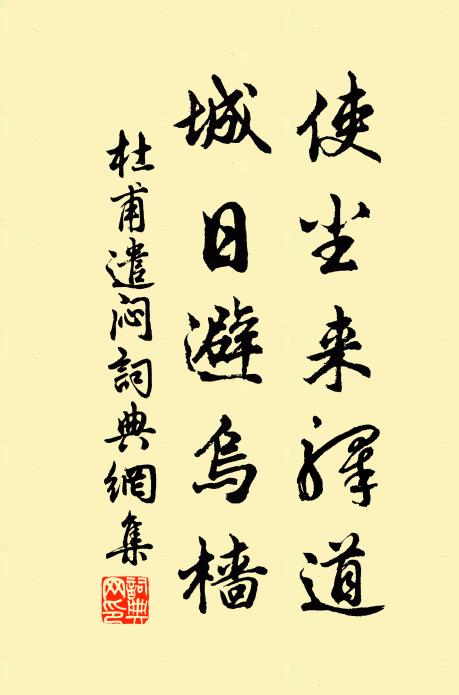 使尘来驛道
城日避烏檣
杜甫遣闷詞典網集
詞典网印